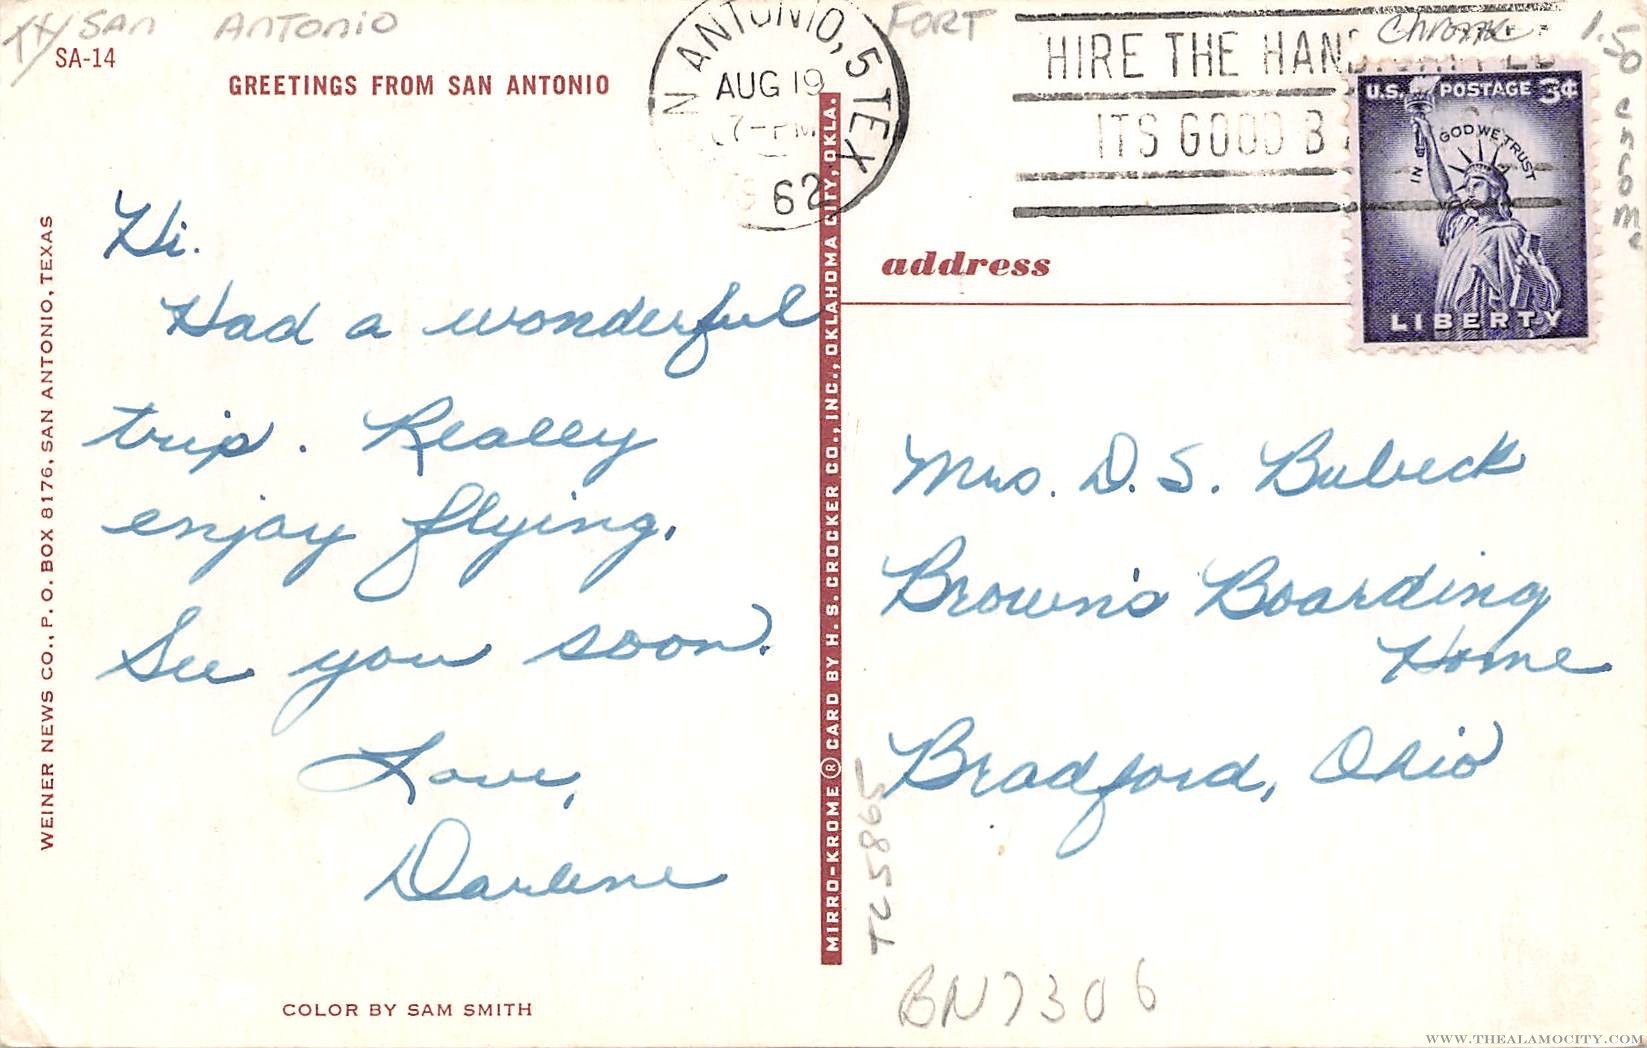 TX SAN ANTONIO
SA-14
GREETINGS FROM SAN ANTONIO
Hi.
Had a wonderful
trip. Really
enjoy flying.
See you soon.
Love,
Darlene
COLOR BY SAM SMITH
WEINER NEWS CO., P. O. BOX 8176, SAN ANTONIO, TEXAS
N ANTONIO, 5 TEX
AUG 19
7-PM
62
MIRRO-KROME ® CARD BY H. S. CROCKER CO., INC., OKLAHOMA CITY, OKLA.
FORT
HIRE THE
ITS GOOD B
Chrome
1.50
U.S. POSTAGE 3¢
IN GOD WE TRUST
LIBERTY
address
Mrs. D. S. Bubeck
Brown's Boarding
Home
Bradford, Ohio
TC5865
BN7306
WWW.THEALAMOCITY.COM